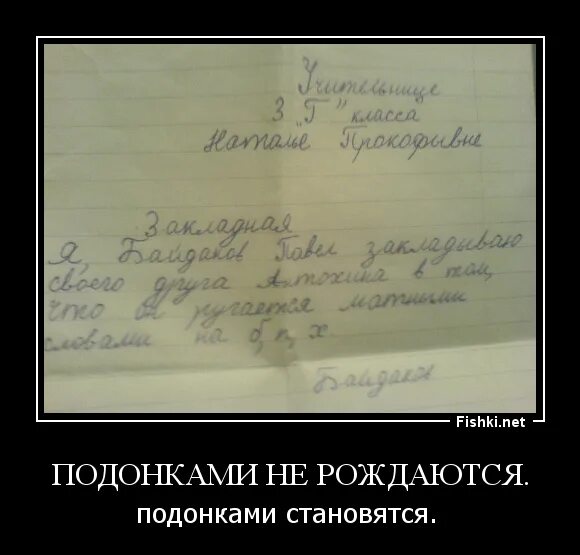 Учительнице
3 "Г" класса
Наталье Прокофивне
Закладная
Я, Байдаков Павел закладываю
своего друга Антохина в том,
что он ругается матными
словами на б, п, х.
Байдаков
Fishki.net
ПОДОНКАМИ НЕ РОЖДАЮТСЯ.
подонками становятся.